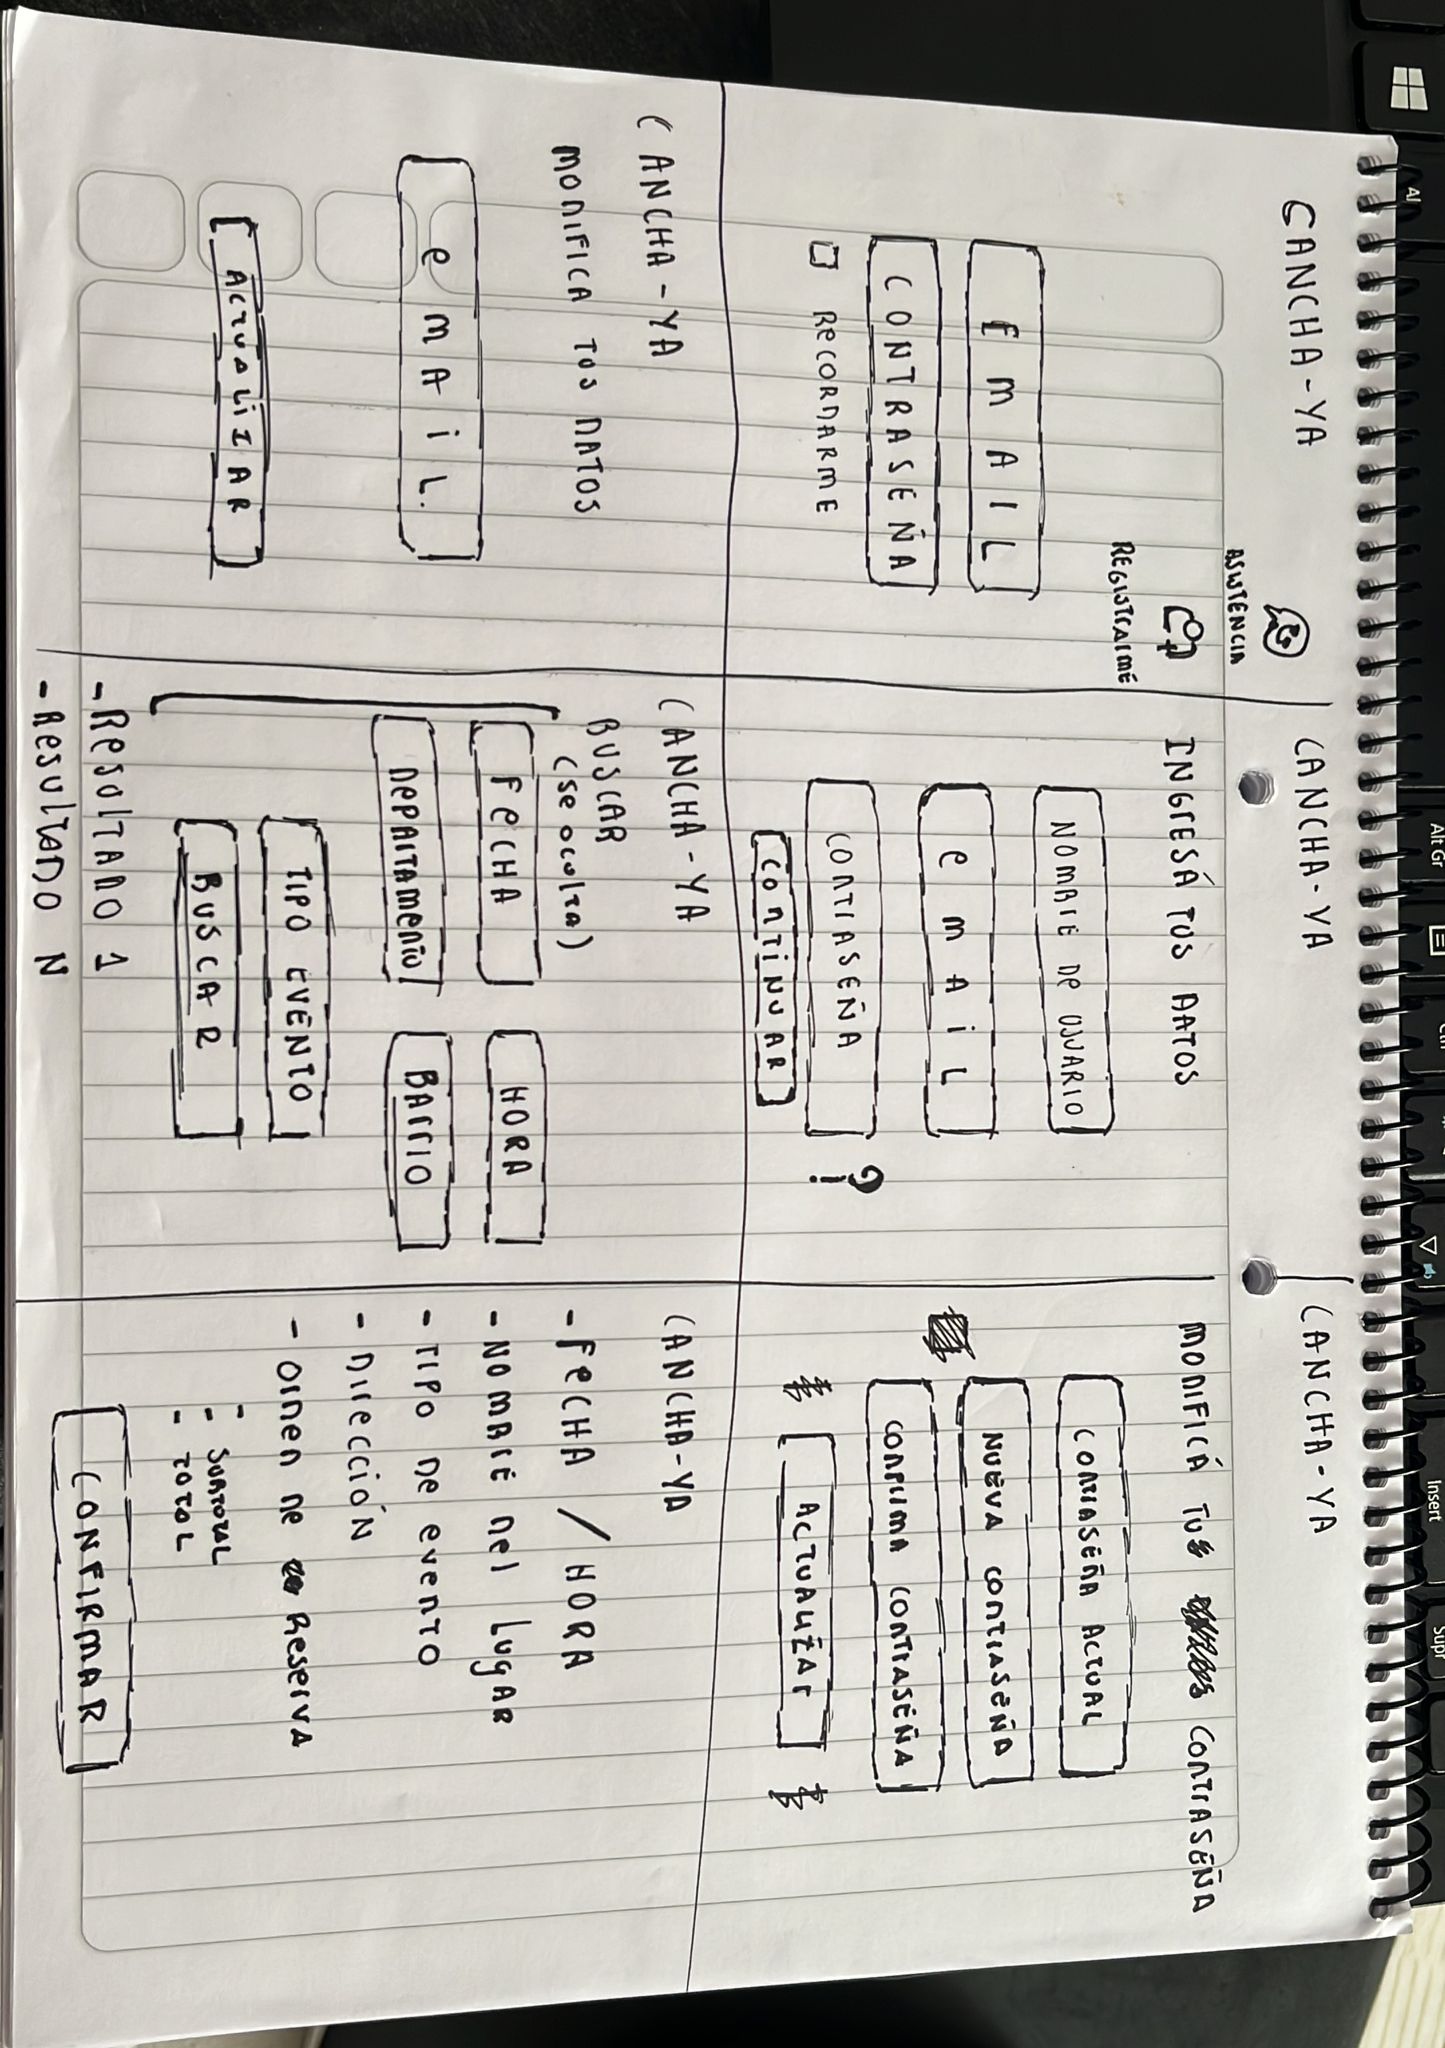 CANCHA-YA
ASISTENCIA
REGISTRARME
EMAIL
CONTRASEÑA
RECORDARME
CANCHA-YA
INGRESÁ TUS DATOS
NOMBRE DE USUARIO
eMAiL
CONTRASEÑA
?
CONTiNUAR
CANCHA-YA
MODIFICÁ TU CONTRASEÑA
CONTRASEÑA ACTUAL
NUEVA CONTRASEÑA
CONFIRMA CONTRASEÑA
ACTUALIZAR
CANCHA-YA
MODIFICA TUS DATOS
eMAiL.
ACTUALiZAR
CANCHA-YA
BUSCAR
(se oculta)
FECHA
HORA
DEPARTAMENTO
BARRIO
TIPO EVENTO
BUSCAR
- RESULTADO 1
- RESULTADO N
CANCHA-YA
- FECHA / HORA
- NOMBRE DEL LUGAR
- TIPO DE EVENTO
- DIRECCIÓN
- ORDEN DE RESERVA
-
- SUBTOTAL
- TOTAL
CONFIRMAR
Al
Alt Gr
Ctrl
Insert
Supr